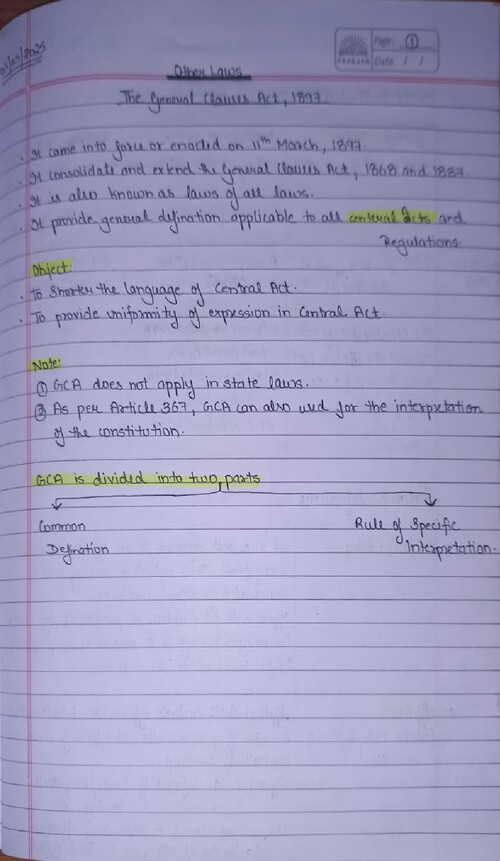 Page: ①
Date / /
Other Laws
The General Clauses Act, 1897
. It came into force or enacted on 11th March, 1897.
. It consolidate and extend the General Clauses Act, 1868 and 1887
. It is also known as laws of all laws.
. It provide general defination applicable to all centeral Acts and
Regulations.
Object:
. To Shorten the language of Central Act.
. To provide uniformity of expression in Central Act.
Note:
① GCA does not apply in state laws.
② As per Article 367, GCA can also used for the interpretation
of the constitution.
GCA is divided into two parts
Common
Defination
Rule of Specific
Interpretation.